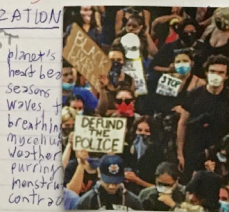 ZATION
planet's
heart bea
seasons
waves t
breathin
myceliu
weather
purring
menstru
contrac
BLACK
LIVES
STOP
DEFUND
THE
POLICE